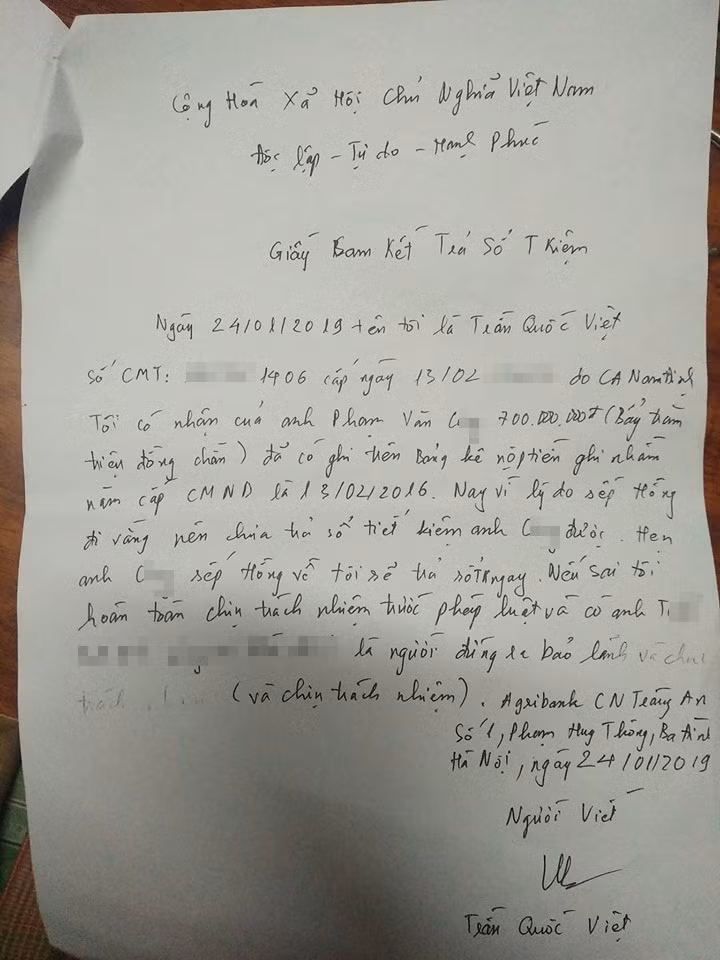 Cộng Hoà Xả Hội Chủ Nghĩa Việt Nam
Độc lập - Tự do - Hạnh Phúc
Giấy Cam Kết Trả Sổ T Kiệm
Ngày 24/01/2019 tên tôi là Trần Quốc Việt
Số CMT: 1406 cấp ngày 13/02 do CA Nam Định
Tôi có nhận của anh Phạm Văn C g 700.000.000đ (Bẩy trăm
triệu đồng chẵn) đã có ghi trên Bảng kê nộp tiền ghi nhầm
năm cấp CMND là 13/02/2016. Nay vì lý do sếp Hồng
đi vắng nên chưa trả sổ tiết kiệm anh C g được. Hẹn
anh C g sếp Hồng về tôi sẽ trả sổ TK ngay. Nếu sai tôi
hoàn toàn chịu trách nhiệm trước pháp luật và có anh T
là người đứng ra bảo lãnh và chịu
trách (và chịu trách nhiệm). Agribank CN Tràng An
Số 1, Phạm Huy Thông, Ba Đình
Hà Nội, ngày 24/01/2019
Người Viết
Trần Quốc Việt